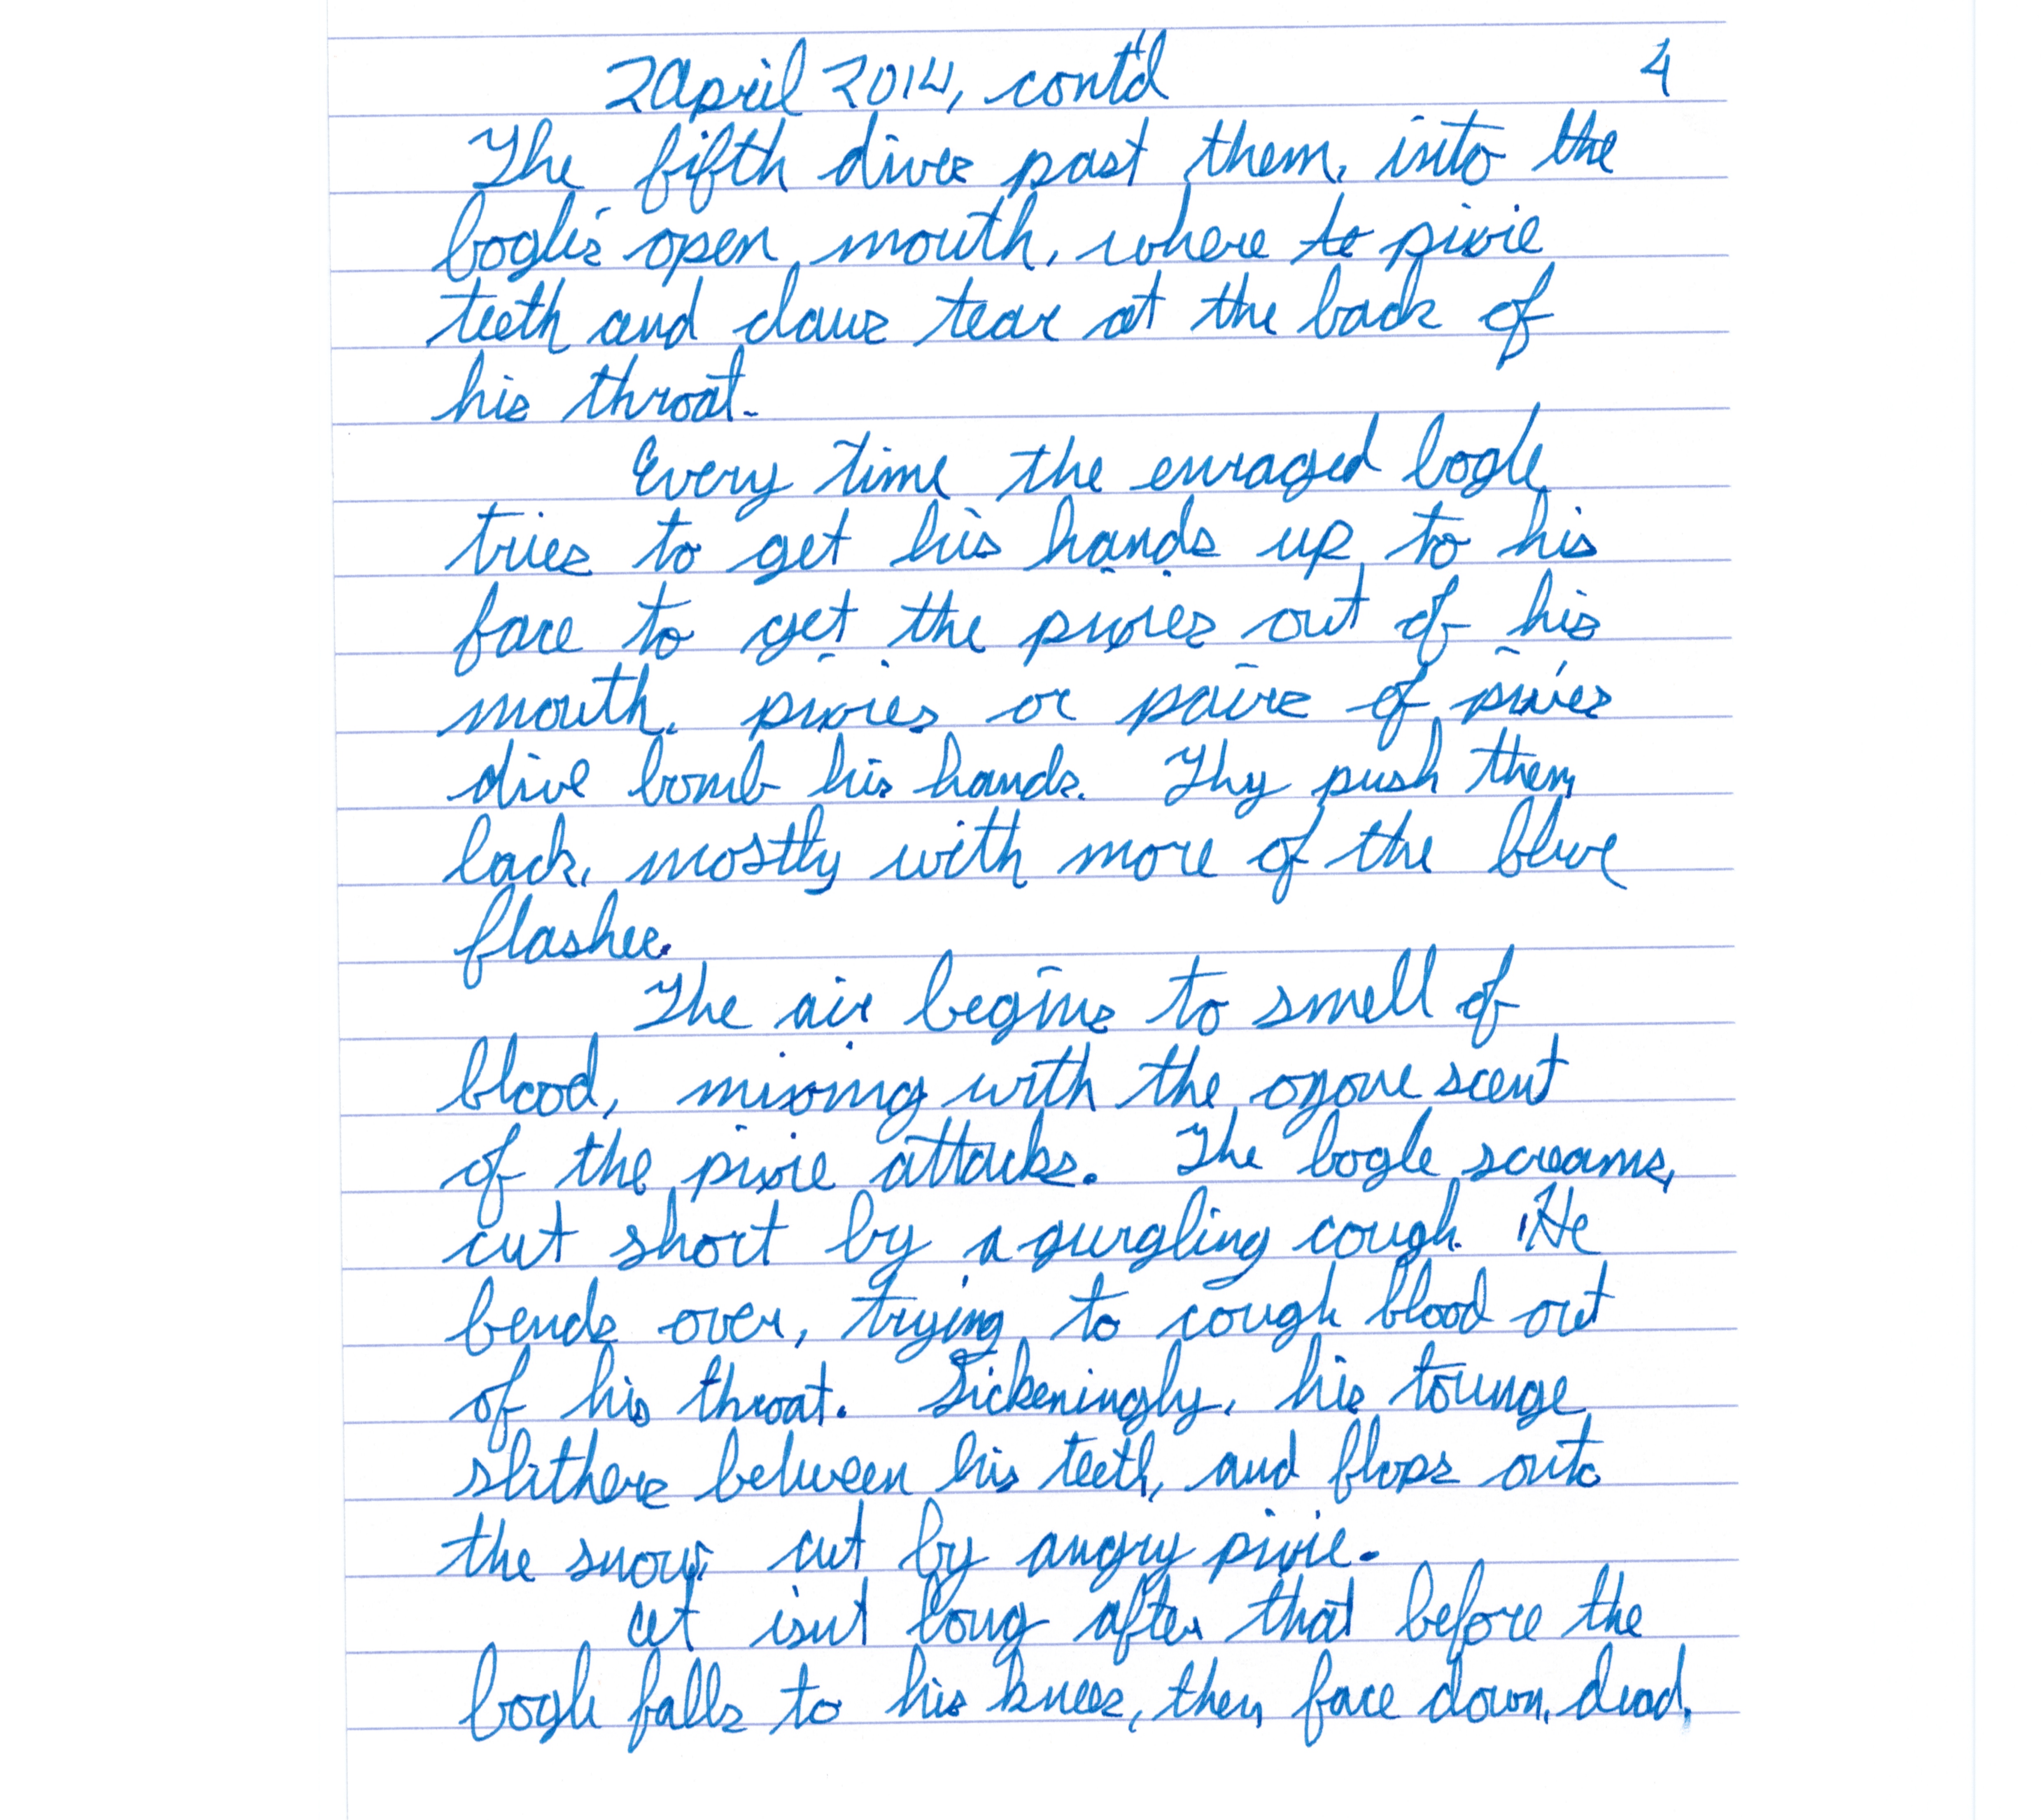 2 April 2014, cont'd 4
The fifth dives past them, into the
bogle's open mouth, where to pixie
teeth and claws tear at the back of
his throat.
Every time the enraged bogle
tries to get his hands up to his
face to get the pixies out of his
mouth, pixies or pairs of pixies
dive bomb his hands. Thy push them
back, mostly with more of the blue
flashes.
The air begins to smell of
blood, mixing with the ozone scent
of the pixie attacks. The bogle screams,
cut short by a gurgling cough. He
bends over, trying to cough blood out
of his throat. Sickeningly, his tounge
slithers between his teeth, and flops onto
the snow, cut by angry pixie.
It isn't long after that before the
bogle falls to his knees, then face down, dead.